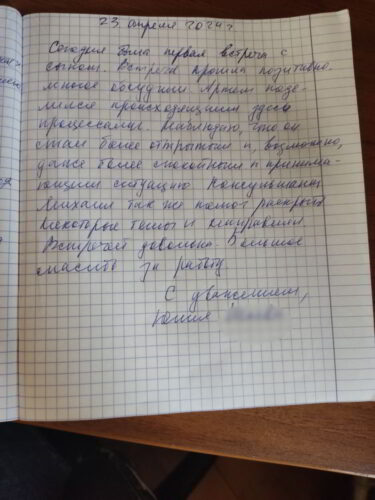 23 апреля 2024 г
Сегодня была первая встреча с
сыном. Встреча прошла позитивно.
Многое обсудили. Артем поде-
лился происходящими здесь
процессами. Наблюдаю, что он
стал более открытым и, возможно,
даже более спокойным и принима-
ющим ситуацию. Консультант
Михаил так же помог раскрыть
некоторые темы и направлял.
Встречей довольна. Большое
спасибо за работу.
С уважением,
Юлия